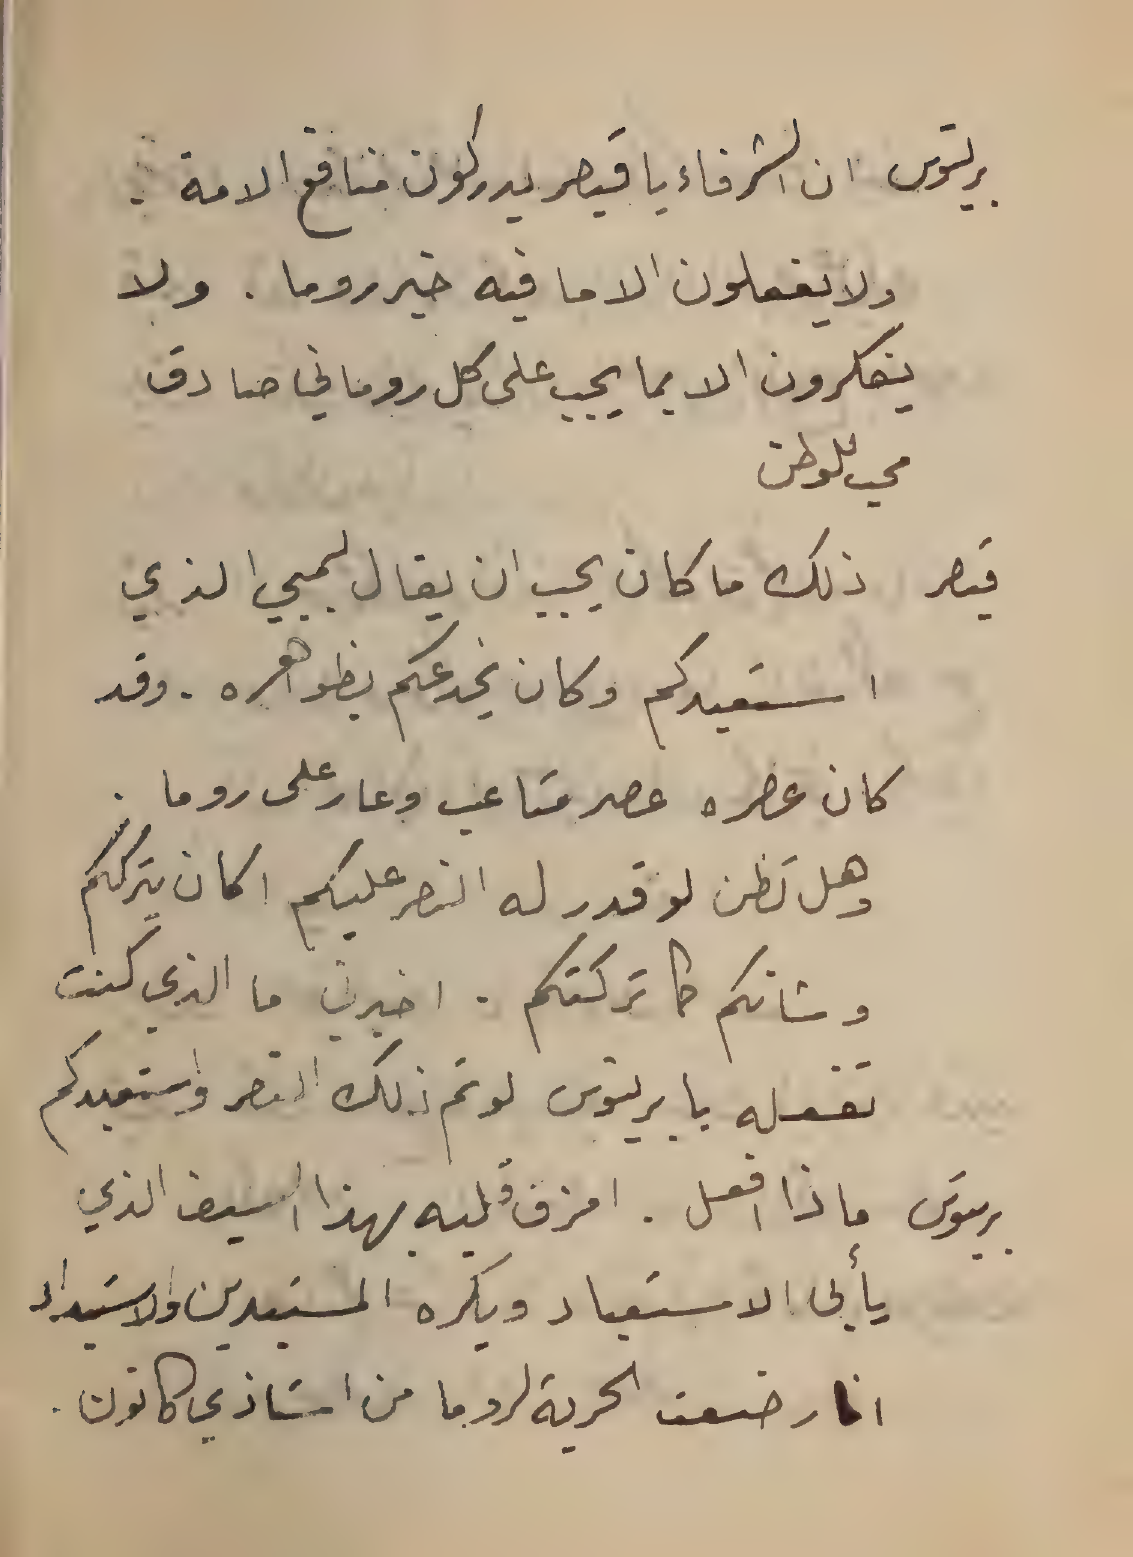 برتوس ان الشرفاء يا قيصر يدركون منافع الامة .
ولا يفعلون الا ما فيه خير روما . ولا
يفكرون الا بما يجب على كل روماني صادق
محب للوطن
قيصر ذلك ما كان يجب ان يقال لبمبي الذي
استعبدكم وكان يخدعكم بظواهره . وقد
كان عصره عصر متاعب وعار على روما .
وهل تظن لو قدر له النصر عليكم اكان يترككم
وشانكم كما تركتكم . اخبرني ما الذي كنت
تفعله يا برتوس لو تم ذلك النصر واستعبدكم
برتوس ماذا افعل . امزق قلبه بهذا السيف الذي
يأبى الاستعباد ويكره المستبدين والاستبداد
انا رضعت الحرية لروما من استاذي كاتون .